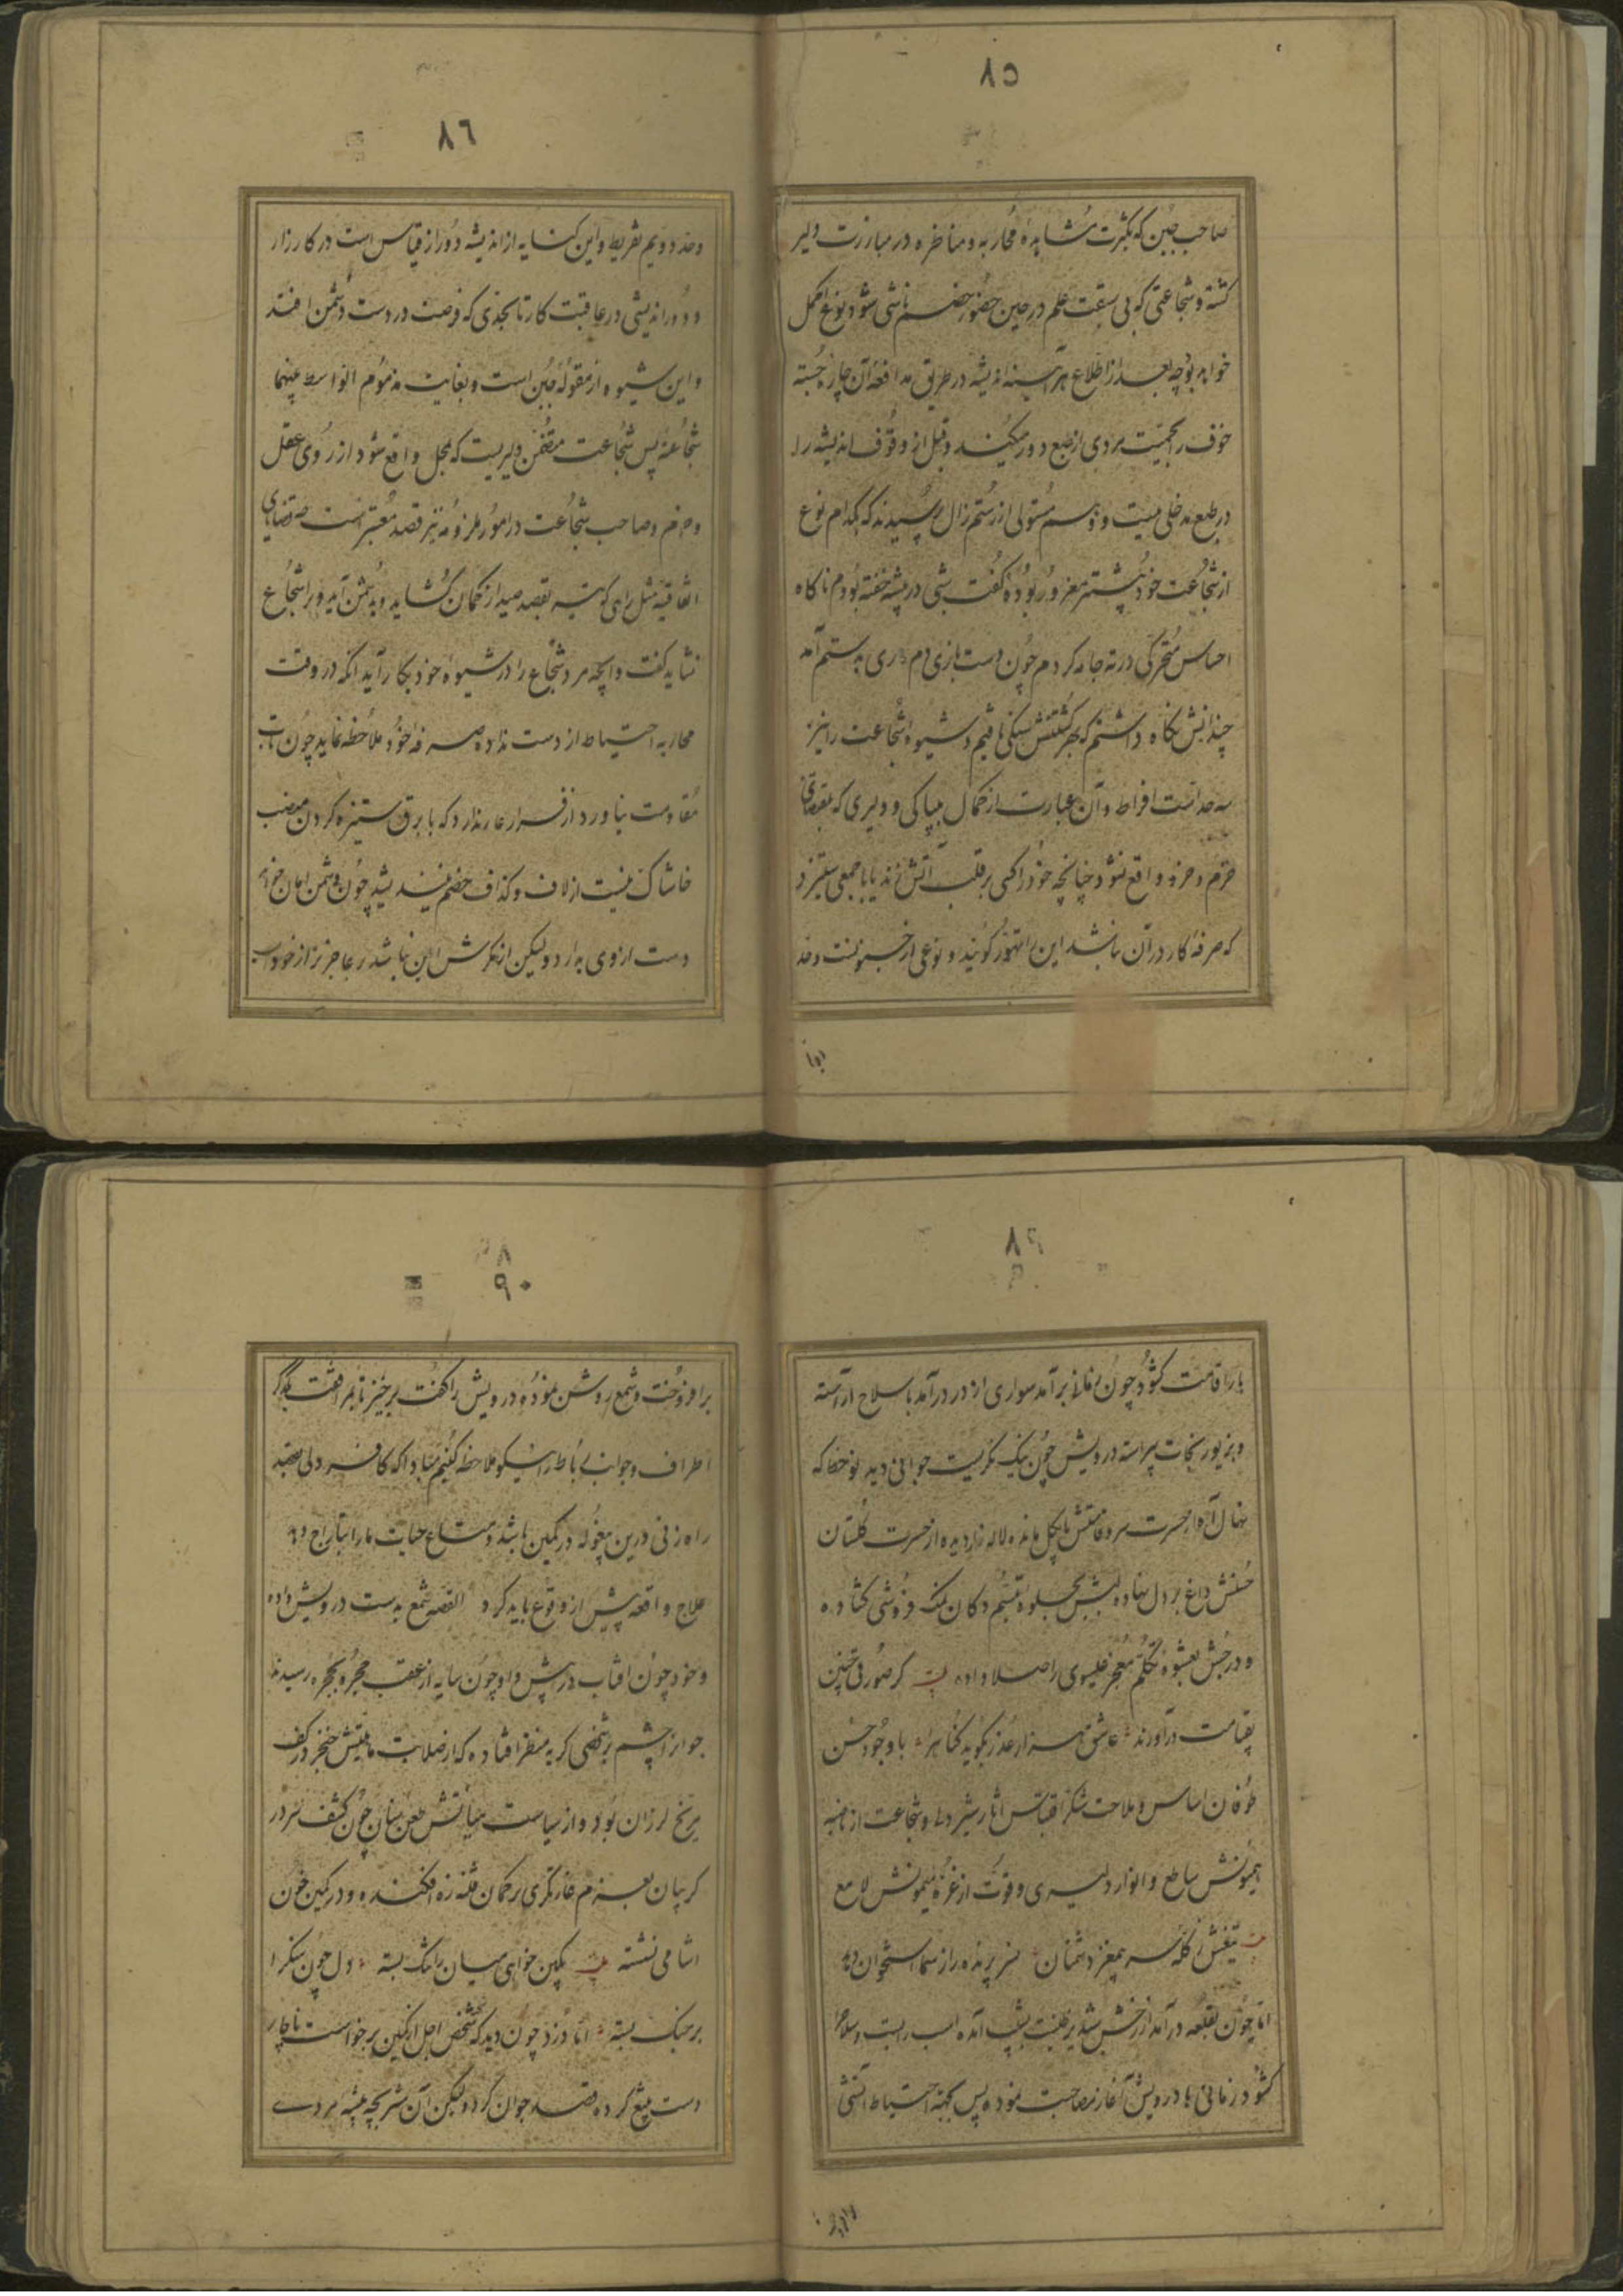 ٨٥
صاحب جبن که بکثرت مشاهدهٔ محاربه و مناظره در مبارزت دلیر
کشته و شجاعتی که بی سبقت علم در حین حضور خصم ناشی شود نوع اکمل
خواهد بود چه بعد از اطلاع هر آینه اندیشه در طریق مدافعهٔ آن چاره جسته
خوف را بحمیّت مردی از طبع دور میکند و قبل از وقوف اندیشه را
در طبع مدخلی نیست و رستم از رستم زال پرسیدند که بکدام نوع
از شجاعت خود بیشتر مغرور بودهٔ گفت شبی در بیشه خفته بودم ناکاه
احساس متحرکی در ته جامه کردم چون دست بازی دم ماری بدستم آمد
چندانش نکاه داشتم که بهر کشتنش سنکی یافتم و شیوهٔ شجاعت را نیز
سه حدّ است افراط و آن عبارت از کمال بیباکی و دلیری که بمقتضای
حزم و حذر واقع نشود چنانچه خود را کسی بر قلب آتش زند یا با جمعی ستیزد
که صرفهٔ کار در آن نباشد این را تهوّر کویند و نوعی از جنونست و حد
دوا
٨٦
وحد دویم تفریط و این کنایه از اندیشه دور از قیاس است در کارزار
و دوراندیشی در عاقبت کار تا بحدّی که فرصت در دست دشمن افتد
و این شیوه از مقولهٔ جبن است و بغایت مذموم اواسط بینهما
شجاعة پس شجاعت متضمن دلیریست که بمحل واقع شود از روی عقل
و حزم و صاحب شجاعت در امور ملزومه نیز قصد معتبر است چه قضایای
اتفاقیه مثل رامی که تیر بقصد صید از کمان کشاید و بدشمن آید ویرا شجاع
نشاید کفت و آنچه مرد شجاع را در شیوهٔ خود بکار آید آنکه در وقت
محاربه احتیاط از دست نداده صرفهٔ خود ملاحظه نماید چون تاب
مقاومت نیاورد از فرار عار ندارد که با برق ستیزه کردن منصب
خاشاک نیست از لاف و کذاف خصم نیندیشد چون دشمن امان خواهد
دست از وی بدارد ولیکن از مکرش ایمن نباشد و عاجز تر از خود
٨٩
بار اقامت کشود چون زمانی برآمد سواری از در درآمد با سلاح آراسته
و بزیور نجات پیراسته درویش چون نیک نکریست جوانی دید نوخط که
نهال آه از حسرت سرو قامتش پا بکل مانده لاله زار دیده از حسرت کلستان
حسنش داغ بر دل نهاده لبش بجلوهٔ تبسّم دکان نمک فروشی کشاده
و در جنبش بعشوهٔ تکلّم معجز عیسوی را صلا داده بیت کر صورتی چنین
بقیامت درآورند عاشق هزار عذر بکوید کناه را با وجود حسن
طوفان اساس و ملاحت شکر اقتباس آثار شیردلی و شجاعت از ناصیه
همیونش ساطع و انوار دلیری و قوّت از غرّهٔ میمونش لامع
بیت تیغش از کلهٔ سر بیمغز دشمنان سر پرنده را ز سما استخوان دهد
امّا چون بقلعه درآمد از رخش شبدیز طلبت بشیب آمده اسب را بست و سلاح
کشود زمانی با درویش آغاز مصاحبت نموده پس بجهة احتیاط آتشی
٩٠
برافروخت و شمع روشن نموده درویش را کفت برخیز تا بمرافقت یکدیکر
اطراف و جوانب رباط را نیکو ملاحظه کنیم مبادا که کافر دلی بقصد
راه زنی درین بیغوله در کمین باشد و متاع حیات ما را بتاراج دهد
علاج واقعه پیش از وقوع باید کرد القصه شمع بدست درویش داده
و خود چون آفتاب در پیش و او چون سایه از عقب حجره بحجره رسیدند
جوانرا چشم بر شخصی کریه منظر افتاده که از صلابت هیئتش خنجر در کف
مریخ لرزان بود و از سیاست سنانش چون کشف سر در
کریبان بعزم غارتکری بر کمان فتنه زه افکنده و در کمین خون
آشامی نشسته بیت بکین خواهی میان را تنک بسته دل چون سنک را
بر جنک بسته امّا دزد چون دید که شخص اجل از کمین برخواست ناچار
دست بتیغ کرده قصد جوان کرد و لیکن آن شیر بچهٔ بیشهٔ مردی